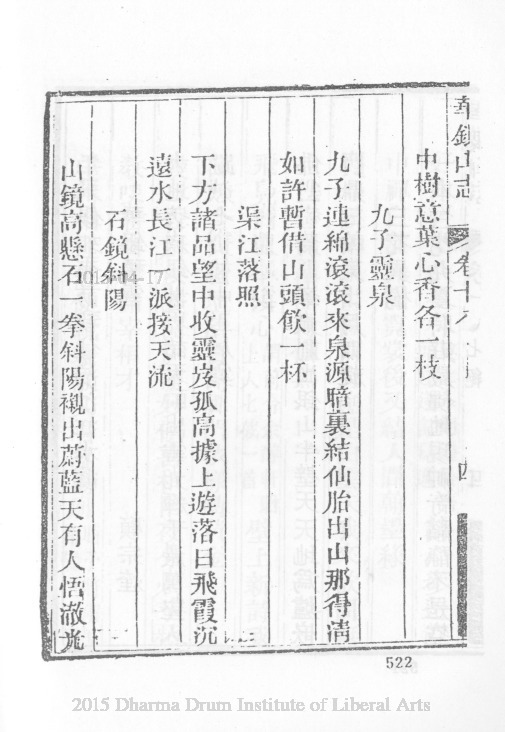 華鎣山志 卷十九 四
中樹意葉心香各一枝
九子靈泉
九子連綿滾滾來泉源暗裏結仙胎出山那得清
如許暫借山頭飲一杯
渠江落照
下方諸品望中收靈岌孤高據上遊落日飛霞沉
遠水長江一派接天流
石鏡斜陽
山鏡高懸石一拳斜陽襯出蔚藍天有人悟澈光
522
2015-04-17
2015 Dharma Drum Institute of Liberal Arts